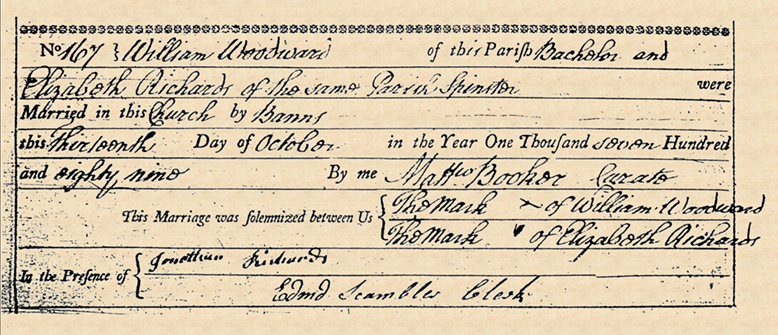 No 167 } William Woodward of this Parish Bachelor and
Elizabeth Richards of the same Parish Spinster were
Married in this Church by Banns
this thirteenth Day of October in the Year One Thousand seven Hundred
and eighty nine By me Mattw Booker Curate
This Marriage was solemnized between Us { The Mark x of William Woodward
The Mark of Elizabeth Richards
In the Presence of { Jonathan Richards
Edmd Scambler Clerk